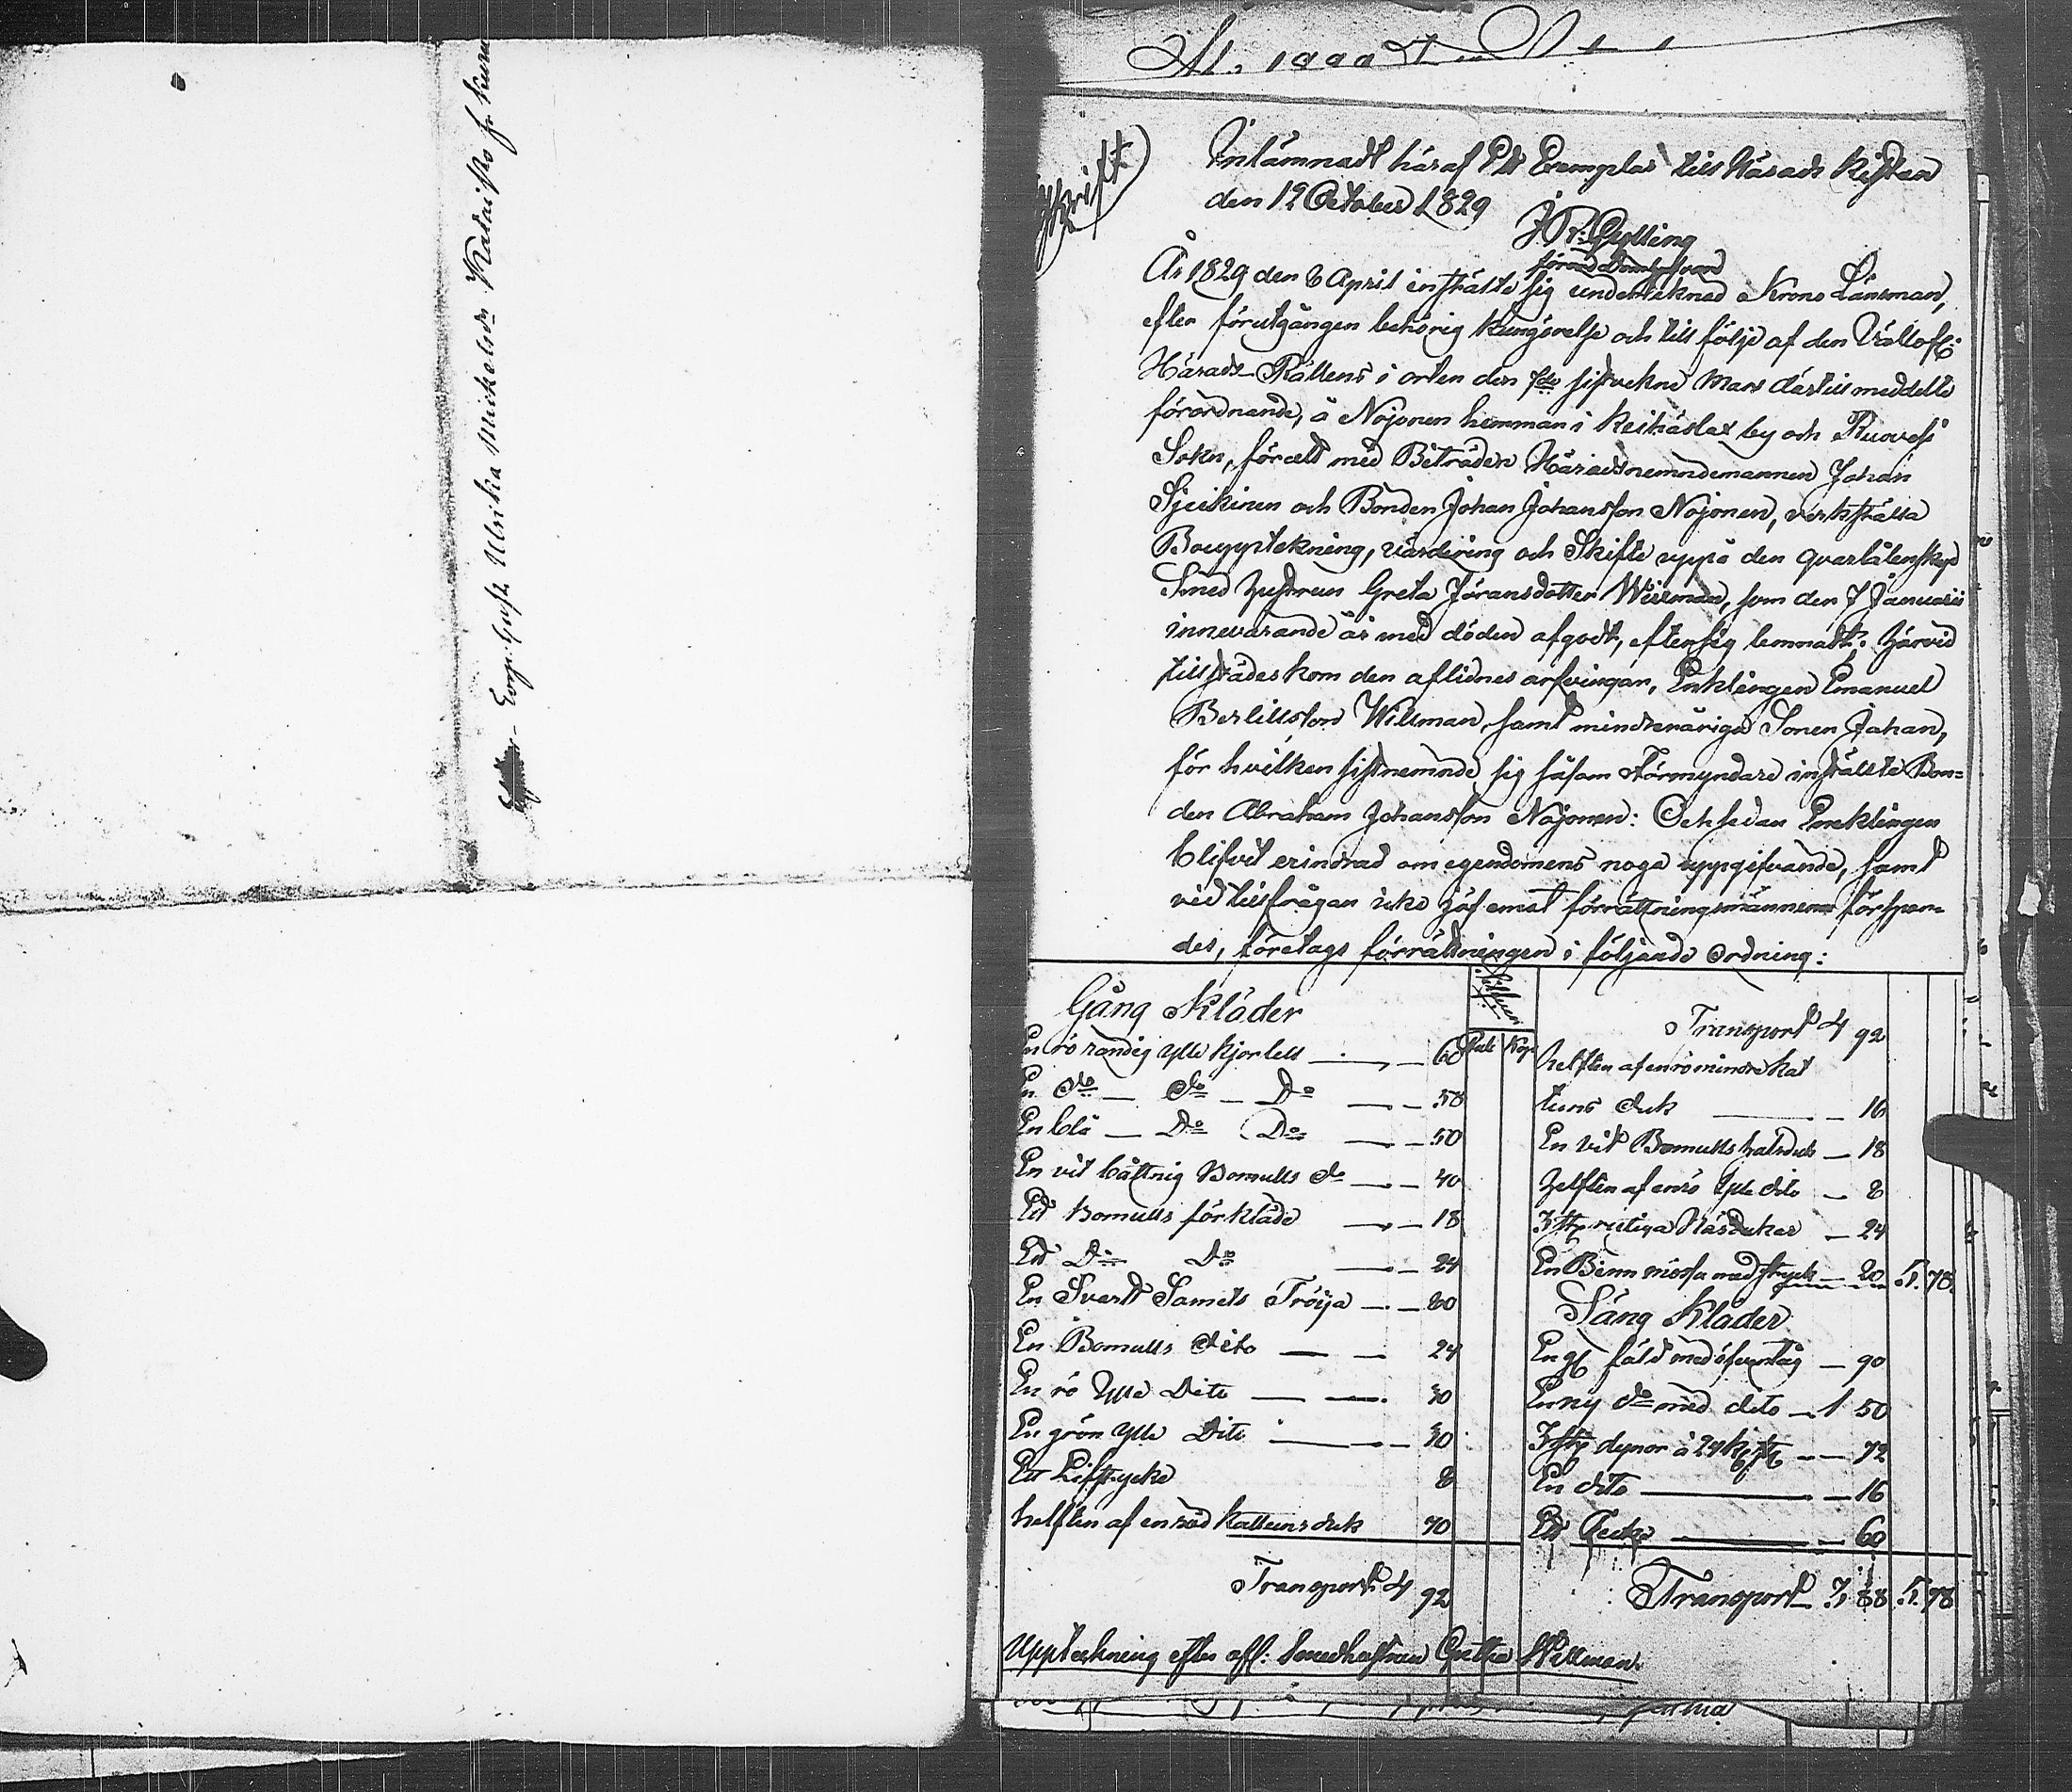 Ulrika Michelsdr
Inlämnadt häraf Ett Exemplar till Härads Kistan
den 12 October 1829
År 1829 den 6 April instälte sig undertecknad Krono Länsman,
efter förutgången behörig kungörelse och till följe af den Vällofl:
Härads-Rättens i orten den 7de sistvekne Mars dertill meddelte
förordnande, å Nojonen hemman i Keihäslax by och Ruovesi
Sokn, för att med Biträden Häradsnemndemannen Johan
och Bonden Johan Johansson Nojonen, verkställa
Bouppteckning, värdering och Skifte uppå den qvarlåtenskap
Smed hustrun Greta Jöransdotter Willman, som den 7 Januarii
innevarande år med döden afgådt, efter sig lemnadt. Härvid
tillstädes kom den aflidnes arfvingar, Enklingen Emanuel
Bertillsson Willman, samt minderåriga Sonen Johan,
för hvilken sistnemnde sig såsom Förmyndare instälte Bon=
den Abraham Johansson Nojonen: Och sedan Enklingen
blifvit erindrad om egendomens noga uppgifvande, samt
vid tillfrågan icke jäf emot förrättningsmännerne förspor-
des, företogs förrättningen i följande ordning:
Gång Kläder
Silfver
Rub Kop
En rö randig ylle kjortell — 60
En do — do — Do — 58
En blå — Do Do — 50
En vit båttnig Bomulls do — 40
Ett Bomulls förkläde — 18
Ett Do Do — 24
En Svart Samets Tröija — 80
En Bomulls dito — 24
En rö Ylle Dito — 30
En grön ylle Dito — 30
Ett Lifstycke 8
helften af en röd Kattuns duk 70
Transport 4 92
Transport 4 92
helften af en rö mindre kat
tuns duk — 16
En vit Bomulls halsduk — 18
helften af en rö Ylle dito — 8
3 st rutiga Näsdukar — 24
En Binn mössa med stycke — 20 5. 78.
Säng Kläder
En gl fäld med öfvertåg — 90
En ny do med dito — 1 50
3 st dynor à 24 k st — 72
En dito — 16
Ett Täcke — 60
Transport 3 88 5. 78
Uppteckning efter afl: Smedhustrun Gretha Willman.